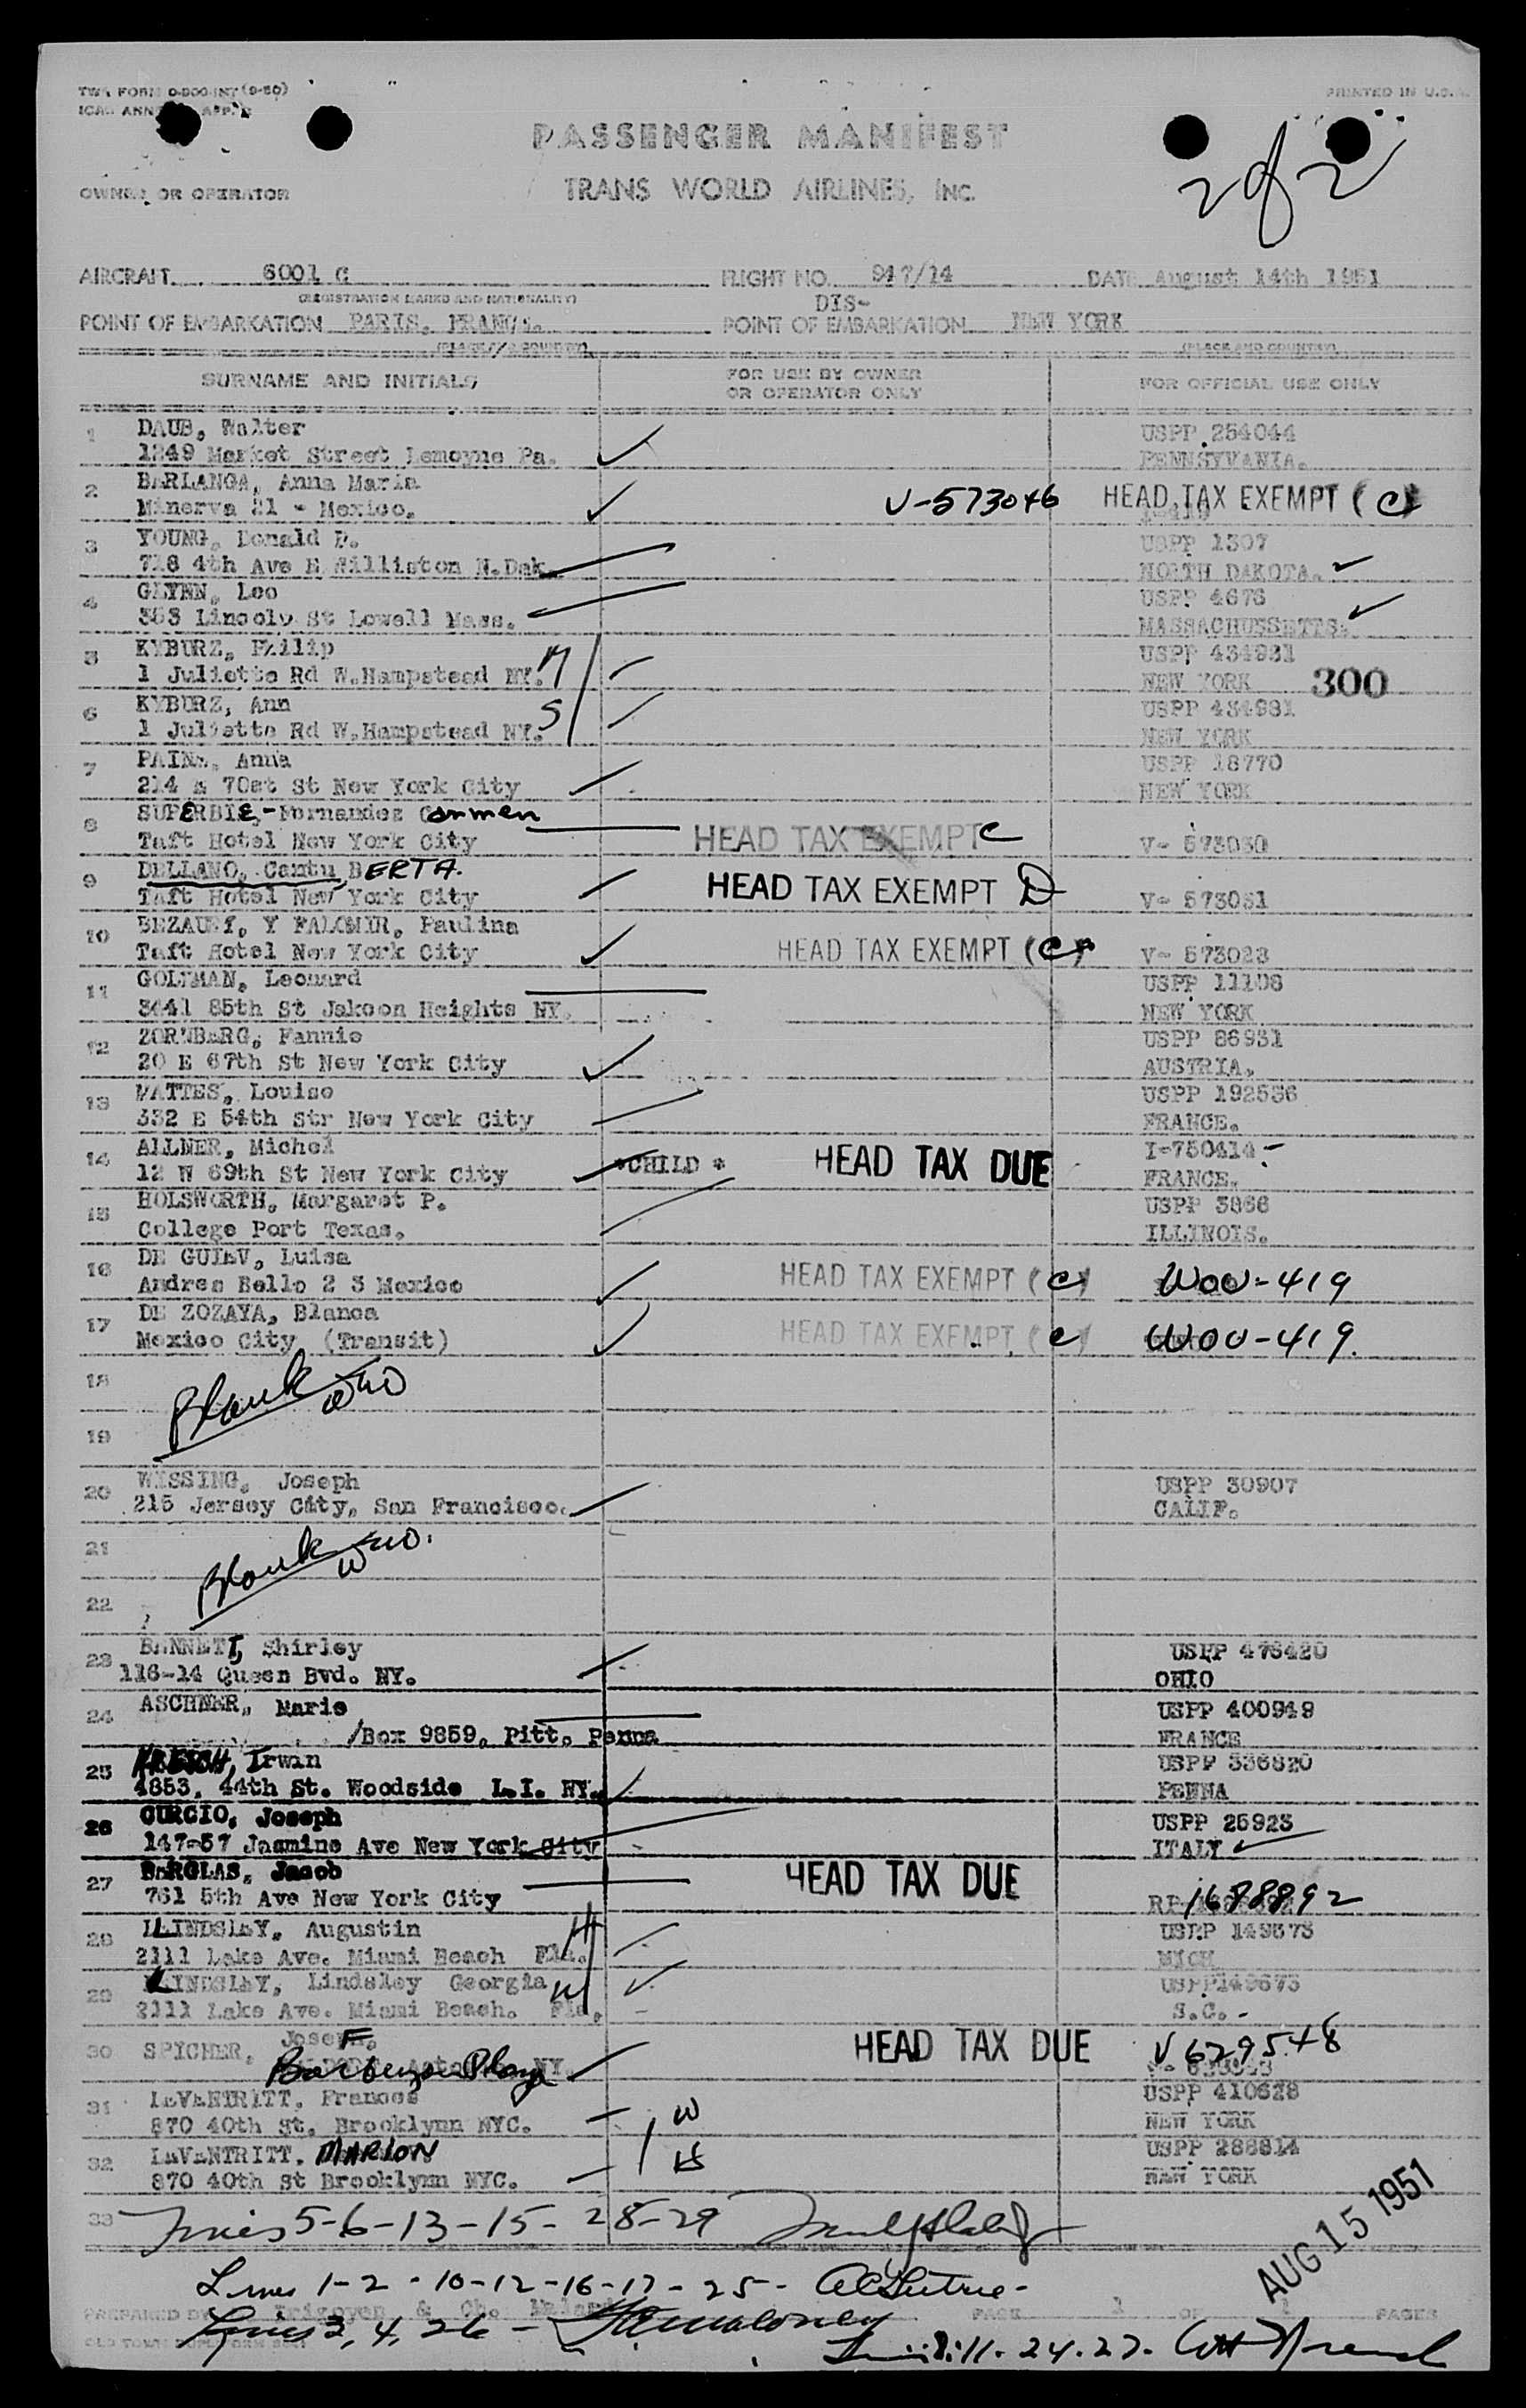 TWA FORM 0-800-INT (9-50)
PRINTED IN U.S.A.
PASSENGER MANIFEST
2 of 2
OWNER OR OPERATOR
TRANS WORLD AIRLINES, INC.
AIRCRAFT 6001 C FLIGHT NO. 947/14 DATE August 14th 1951
(REGISTRATION MARKS AND NATIONALITY)
DIS-
POINT OF EMBARKATION PARIS, FRANCE. POINT OF EMBARKATION NEW YORK
(PLACE AND COUNTRY) (PLACE AND COUNTRY)
SURNAME AND INITIALS FOR USE BY OWNER OR OPERATOR ONLY FOR OFFICIAL USE ONLY
1 DAUB, Walter USPP 254044
1249 Market Street Lemoyne Pa. PENNSYVANIA.
2 BARLANGA, Anna Maria
Minerva 21 - Mexico. V-573046 HEAD TAX EXEMPT (C)
3 YOUNG, Donald D. USPP 1307
718 4th Ave E Williston N.Dak. NORTH DAKOTA.
4 GLYNN, Leo USPP 4676
353 Lincoln St Lowell Mass. MASSACHUSSETTS.
5 KYBURZ, Philip USPP 434931
1 Juliette Rd W.Hampstead NY. NEW YORK 300
6 KYBURZ, Ann S USPP 434931
1 Juliette Rd W.Hampstead NY. NEW YORK
7 PAINE, Anna USPP 18770
214 E 70st St New York City NEW YORK
8 SUPERBIE,-Fernandez Carmen
Taft Hotel New York City HEAD TAX EXEMPT C V- 573030
9 DELLANO, Cantu BERTA.
Taft Hotel New York City HEAD TAX EXEMPT D V- 573031
10 Y PALOMIR, Paulina
Taft Hotel New York City HEAD TAX EXEMPT (C) V- 573023
11 GOLTMAN, Leonard USPP 11108
3641 85th St Jakson Heights NY. NEW YORK
12 ZORNBERG, Fannie USPP 86931
20 E 67th St New York City AUSTRIA.
13 MATTES, Louise USPP 192536
332 E 54th Str New York City FRANCE.
14 ALLNER, Michel I-750414
12 W 69th St New York City *CHILD * HEAD TAX DUE FRANCE.
15 HOLSWORTH, Margaret P. USPP 3866
College Port Texas. ILLINOIS.
16 DE Luisa
Andres Bello 2 3 Mexico HEAD TAX EXEMPT (C) WOV-419
17 DE ZOZAYA, Blanca
Mexico City (Transit) HEAD TAX EXEMPT (C) WOV-419.
18 Blank
19
20 WISSING, Joseph USPP 30907
215 Jersey City, San Francisco. CALIF.
21 Blank
22
23 BENNETT, Shirley USPP 476420
116-14 Queen Bvd. NY. OHIO
24 ASCHNER, Marie USPP 400949
/Box 9859, Pitt. Penna FRANCE
25 Irwin USPP 336820
4853, 44th St. Woodside L.I. NY. PENNA
26 CURCIO, Joseph USPP 25923
147-57 Jasmine Ave New York City ITALY
27 Jacob HEAD TAX DUE
761 5th Ave New York City 1688892
28 LINDSLEY, Augustin H USPP 149673
2111 Lake Ave. Miami Beach Fla. MICH
29 LINDSLEY, Lindsley Georgia W USPP149673
2111 Lake Ave. Miami Beach. Fla. S.C.
30 SPYCHER, Josef HEAD TAX DUE V 629548
Barbizon Plaza NY.
31 LEVENTRITT, Frances W USPP 410628
870 40th St. Brooklynn NYC. NEW YORK
32 LEVENTRITT, MARION USPP 288814
870 40th St Brooklynn NYC. NEW YORK
33 Lines 5-6-13-15-28-29
AUG 15 1951
Lines 1-2-10-12-16-17-25-
PREPARED BY & Ch. PAGE 1 OF 1 PAGES
Lines 3, 4, 26 - Maloney
11. 24. 27.